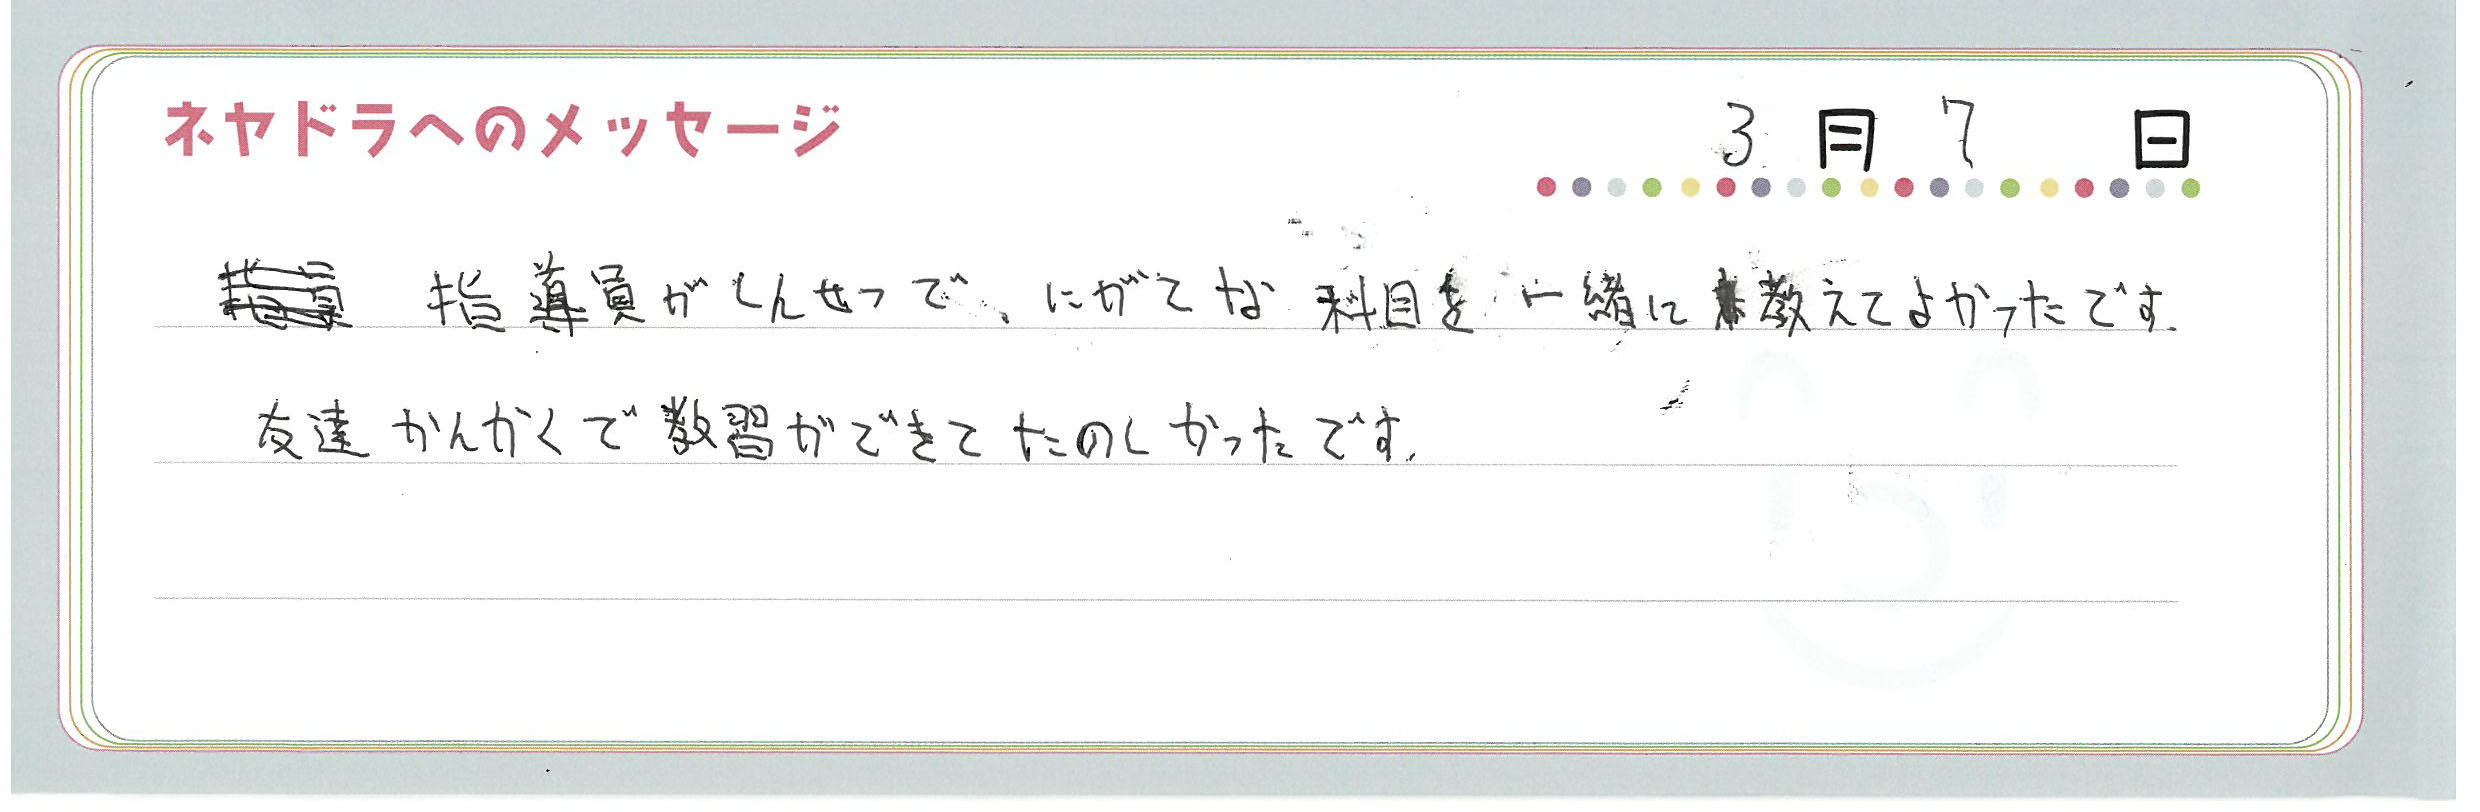 ネヤドラへのメッセージ
3月7日
指導員がしんせつで、にがてな科目を一緒に教えてよかったです.
友達かんかくで教習ができてたのしかったです.